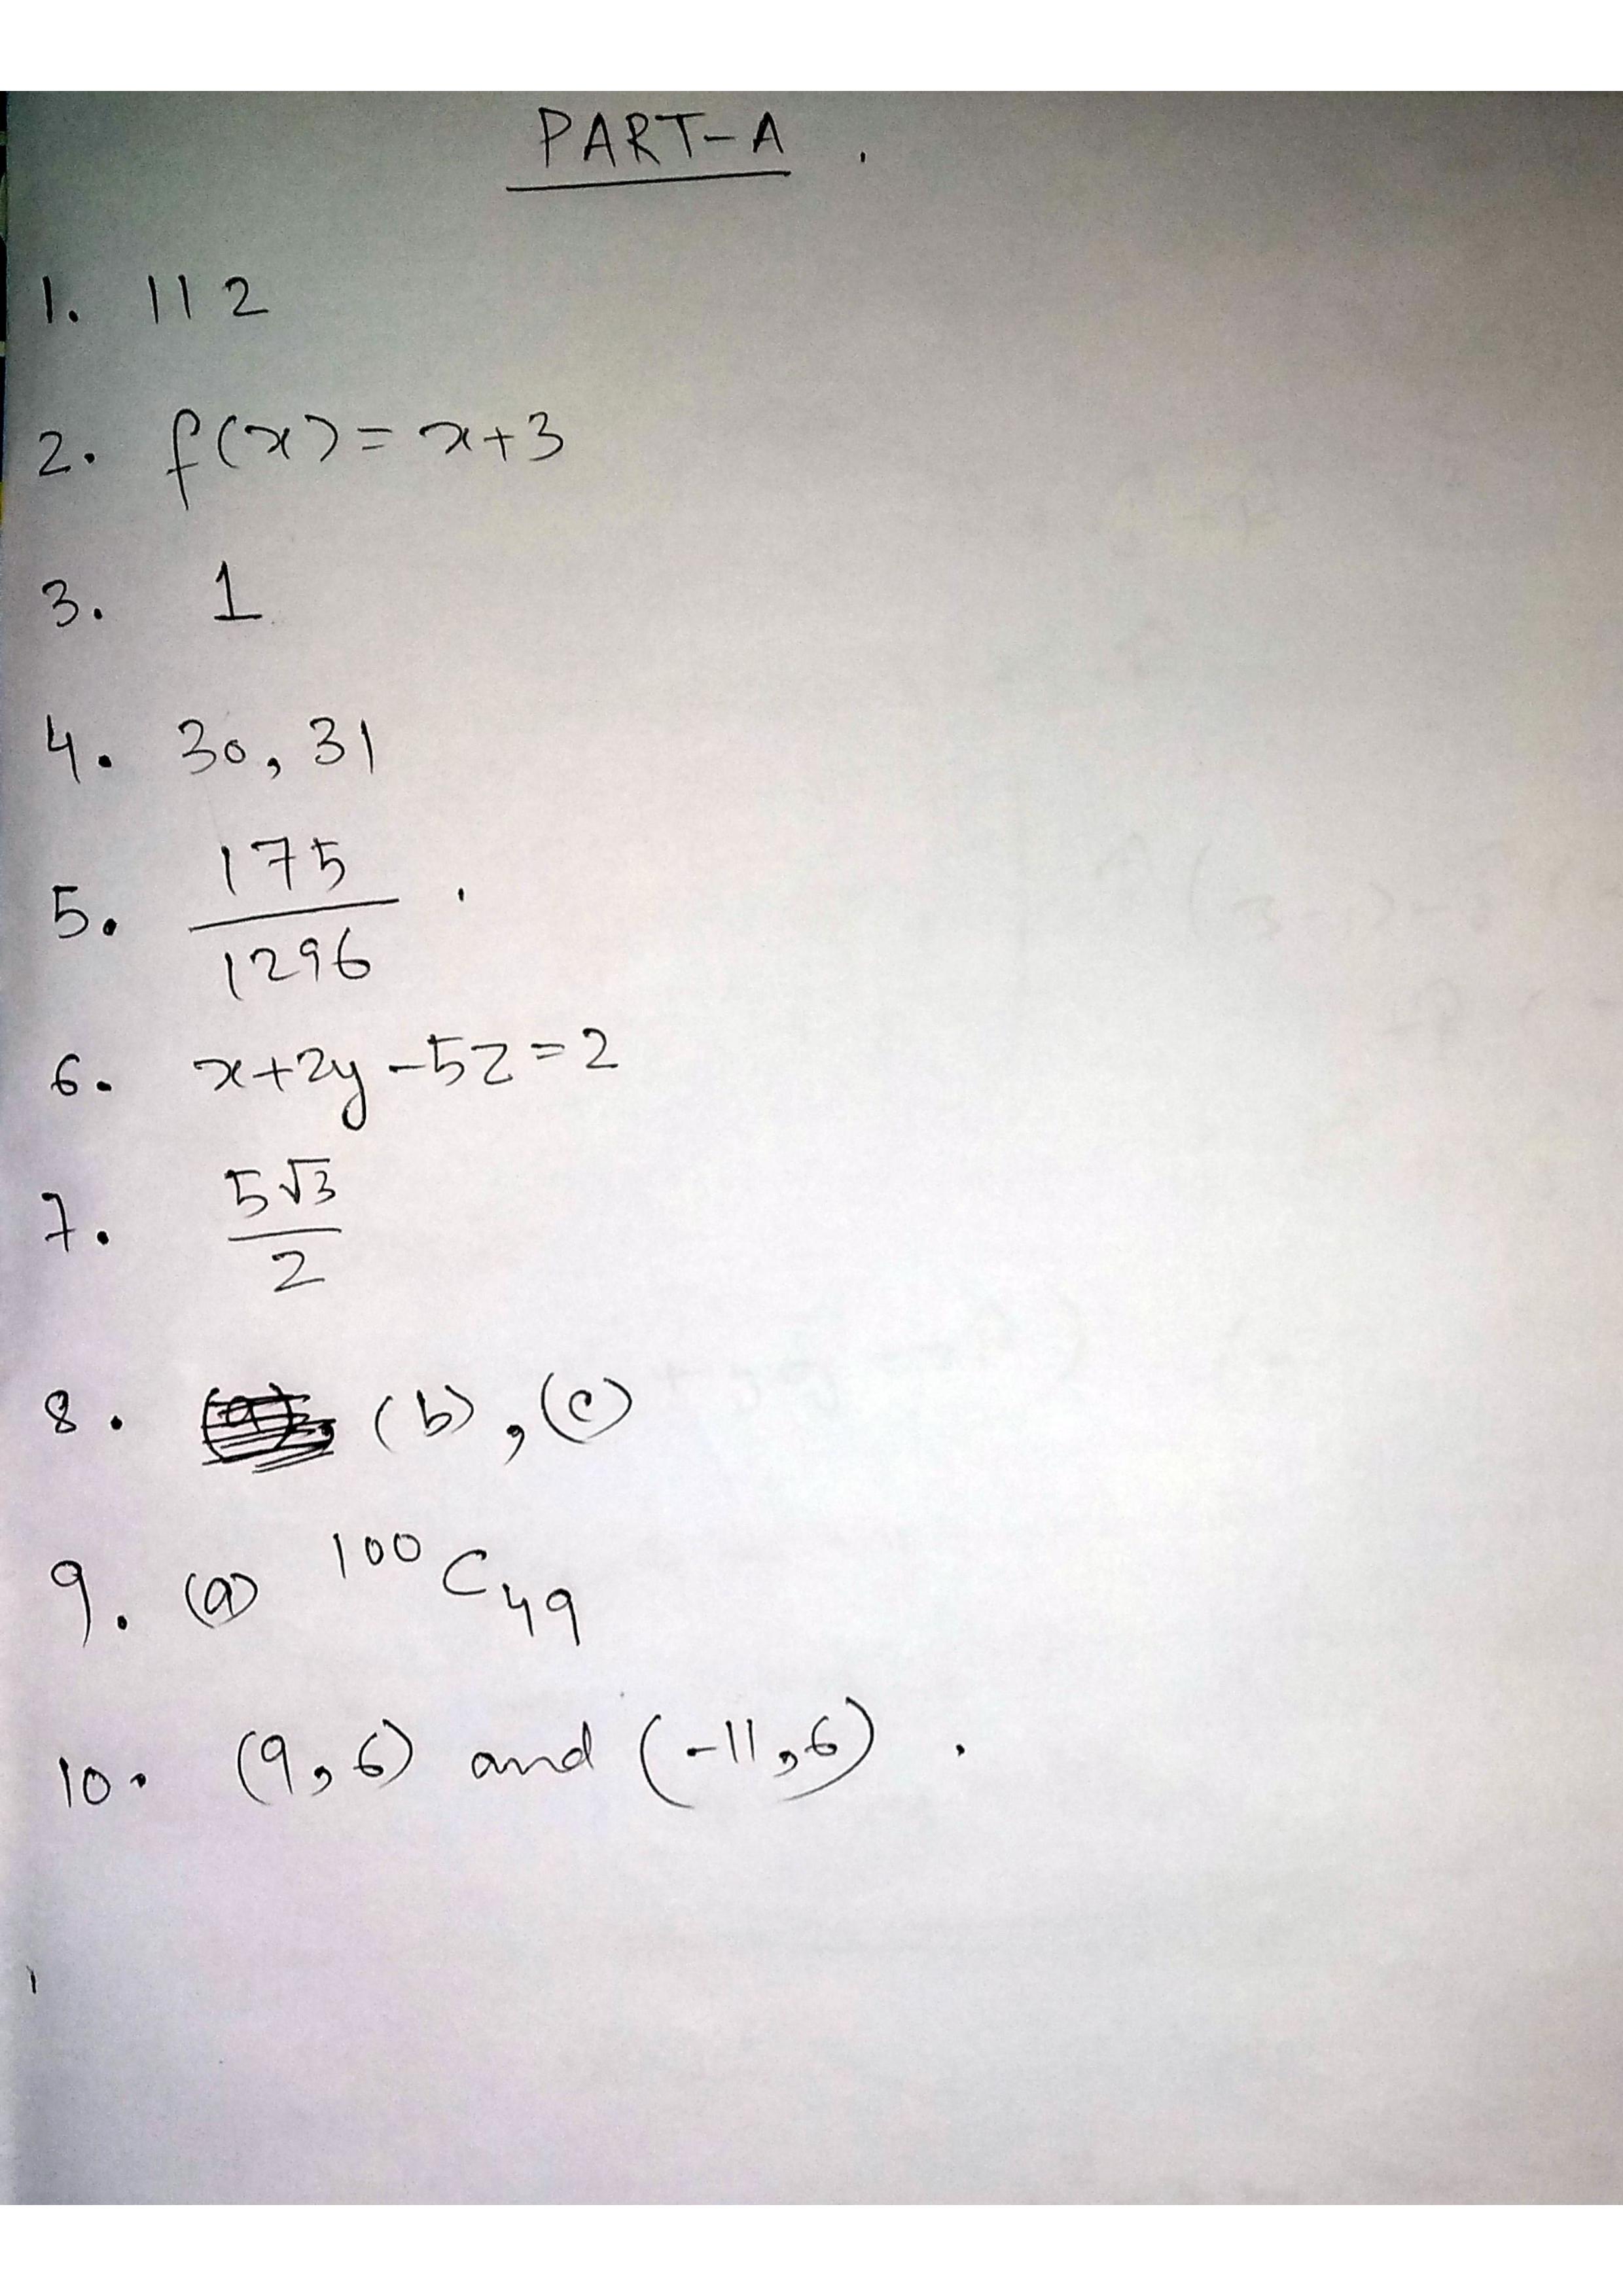 PART-A.
1. 112
2. f(x)=x+3
3. 1
4. 30, 31
5. 175/1296.
6. x+2y-5z=2
7. 5√3/2
8. (b), (c)
9. (a) ¹⁰⁰C₄₉
10. (9,6) and (-11,6).